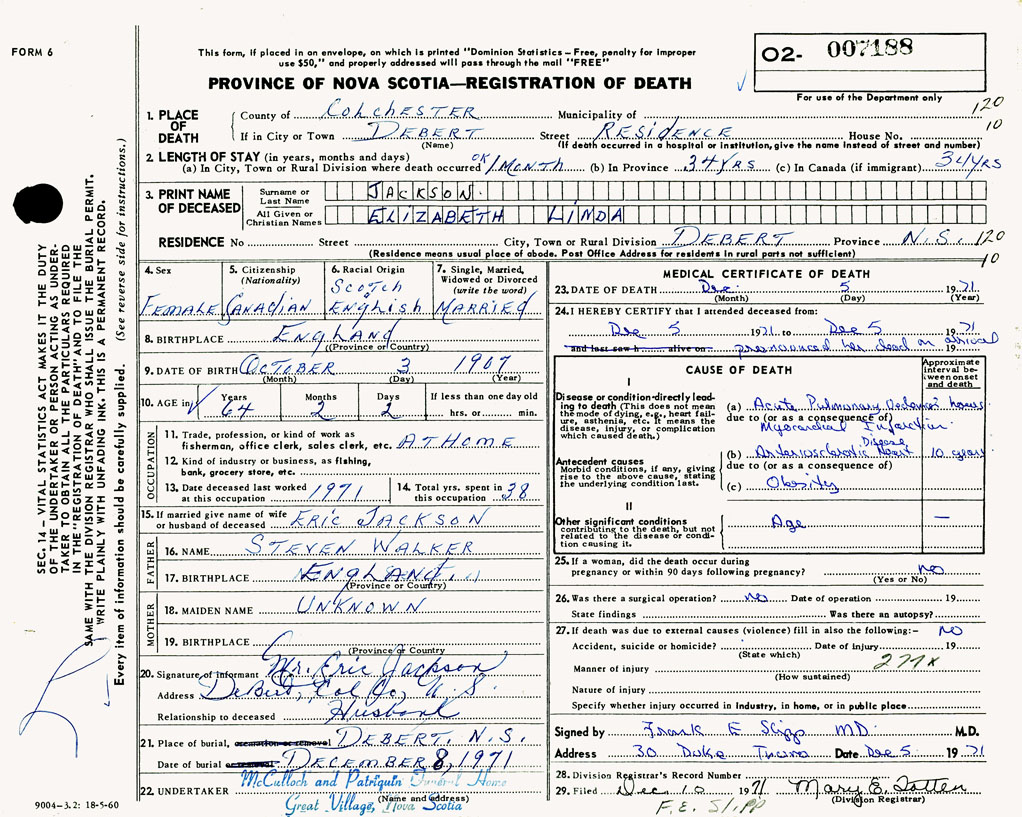 FORM 6
This form, if placed in an envelope, on which is printed "Dominion Statistics – Free, penalty for improper
use $50," and properly addressed will pass through the mail "FREE"
O2- 007188
For use of the Department only
PROVINCE OF NOVA SCOTIA—REGISTRATION OF DEATH
120
10
1. PLACE OF DEATH
County of COLCHESTER Municipality of
If in City or Town DEBERT Street RESIDENCE House No.
(Name) (If death occurred in a hospital or institution, give the name instead of street and number)
2. LENGTH OF STAY (in years, months and days)
(a) In City, Town or Rural Division where death occurred OK 1 MONTH (b) In Province 34 YRS (c) In Canada (if immigrant) 34 YRS
3. PRINT NAME OF DECEASED
Surname or Last Name JACKSON
All Given or Christian Names ELIZABETH LINDA
RESIDENCE No Street City, Town or Rural Division DEBERT Province N.S. 120
10
(Residence means usual place of abode. Post Office Address for residents in rural parts not sufficient)
4. Sex
FEMALE
5. Citizenship
(Nationality)
CANADIAN
6. Racial Origin
SCOTCH
ENGLISH
7. Single, Married,
Widowed or Divorced
(write the word)
MARRIED
8. BIRTHPLACE ENGLAND
(Province or Country)
9. DATE OF BIRTH OCTOBER 3 1907
(Month) (Day) (Year)
10. AGE in Years Months Days If less than one day old
64 2 2 hrs. or min.
OCCUPATION
11. Trade, profession, or kind of work as
fisherman, office clerk, sales clerk, etc. AT HOME
12. Kind of industry or business, as fishing,
bank, grocery store, etc.
13. Date deceased last worked
at this occupation 1971
14. Total yrs. spent in
this occupation 38
15. If married give name of wife
or husband of deceased ERIC JACKSON
FATHER
16. NAME STEVEN WALKER
17. BIRTHPLACE ENGLAND
(Province or Country)
MOTHER
18. MAIDEN NAME UNKNOWN
19. BIRTHPLACE
(Province or Country
20. Signature of informant Mr. Eric Jackson
Address DeBert, Col Co, N.S.
Relationship to deceased Husband
21. Place of burial, cremation or removal DEBERT, N.S.
Date of burial DECEMBER 8, 1971
22. UNDERTAKER McCulloch and Patriquin Funeral Home
(Name and address)
Great Village, Nova Scotia
MEDICAL CERTIFICATE OF DEATH
23. DATE OF DEATH Dec. 5 1971
(Month) (Day) (Year)
24. I HEREBY CERTIFY that I attended deceased from:
Dec 5 1971 to Dec 5 1971
and last saw h alive on pronounced her dead on arrival
CAUSE OF DEATH
Approximate
interval be-
tween onset
and death
I
Disease or condition directly lead-
ing to death (This does not mean
the mode of dying, e.g., heart fail-
ure, asthenia, etc. It means the
disease, injury, or complication
which caused death.)
(a) Acute Pulmonary Oedema hours
due to (or as a consequence of)
Myocardial Infarction
Antecedent causes
Morbid conditions, if any, giving
rise to the above cause, stating
the underlying condition last.
(b) Arteriosclerotic Heart Disease 10 years
due to (or as a consequence of)
(c) Obesity
II
Other significant conditions
contributing to the death, but not
related to the disease or condi-
tion causing it.
Age —
25. If a woman, did the death occur during
pregnancy or within 90 days following pregnancy? no
(Yes or No)
26. Was there a surgical operation? no Date of operation 19
State findings Was there an autopsy?
27. If death was due to external causes (violence) fill in also the following:— NO
Accident, suicide or homicide? Date of injury 19
(State which)
Manner of injury
(How sustained)
Nature of injury
Specify whether injury occurred in industry, in home, or in public place
Signed by Frank E Slipp MD. M.D.
Address 30 Duke Truro Date Dec 5 1971
28. Division Registrar's Record Number
29. Filed Dec 10 1971 Mary E. Totten
(Division Registrar)
F.E. Slipp
9004–3.2: 18-5-60
SEC. 14 – VITAL STATISTICS ACT MAKES IT THE DUTY
OF THE UNDERTAKER OR PERSON ACTING AS UNDER-
TAKER TO OBTAIN ALL THE PARTICULARS REQUIRED
IN THE "REGISTRATION OF DEATH" AND TO FILE THE
SAME WITH THE DIVISION REGISTRAR WHO SHALL ISSUE THE BURIAL PERMIT.
WRITE PLAINLY WITH UNFADING INK. THIS IS A PERMANENT RECORD.
Every item of information should be carefully supplied. (See reverse side for instructions.)